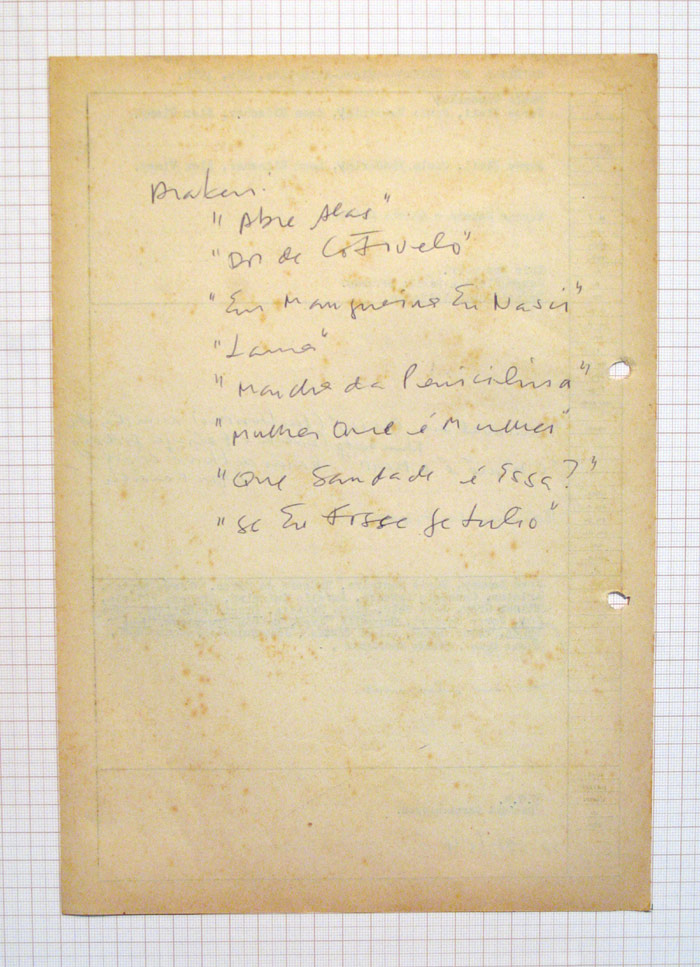 Araken:
"Abre Alas"
"Dor de Cotovelo"
"Em Mangueira Eu Nasci"
"Lama"
"Marcha da Penicilina"
"Mulher Que é Mulher"
"Que Saudade é Essa?"
"Se Eu Fosse Getulio"